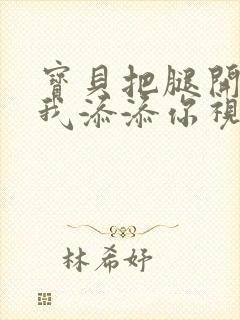 寶貝把腿開
我添添你視
林希妤